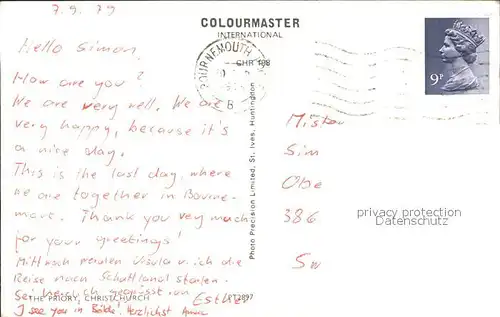 7.9.79
COLOURMASTER
INTERNATIONAL
BOURNEMOUTH
CHR 188
9P
Hello Simon
How are you?
We are very well. We are
very happy, because it's
a nice day.
This is the last day, where
we are together in Bourne-
mout. Thank you vey much
for your greetings!
Mittwoch werden Ursula u. ich die
Reise nach Schottland starten.
Sei herzlich gegrüsst von
Esther
THE PRIORY, CHRISTCHURCH
T2897
I see you in Bälde! Herzlichst
Photo Precision Limited, St. Ives, Huntingdon
Mister
Sim
Obe
386
Sw
privacy protection
Datenschutz